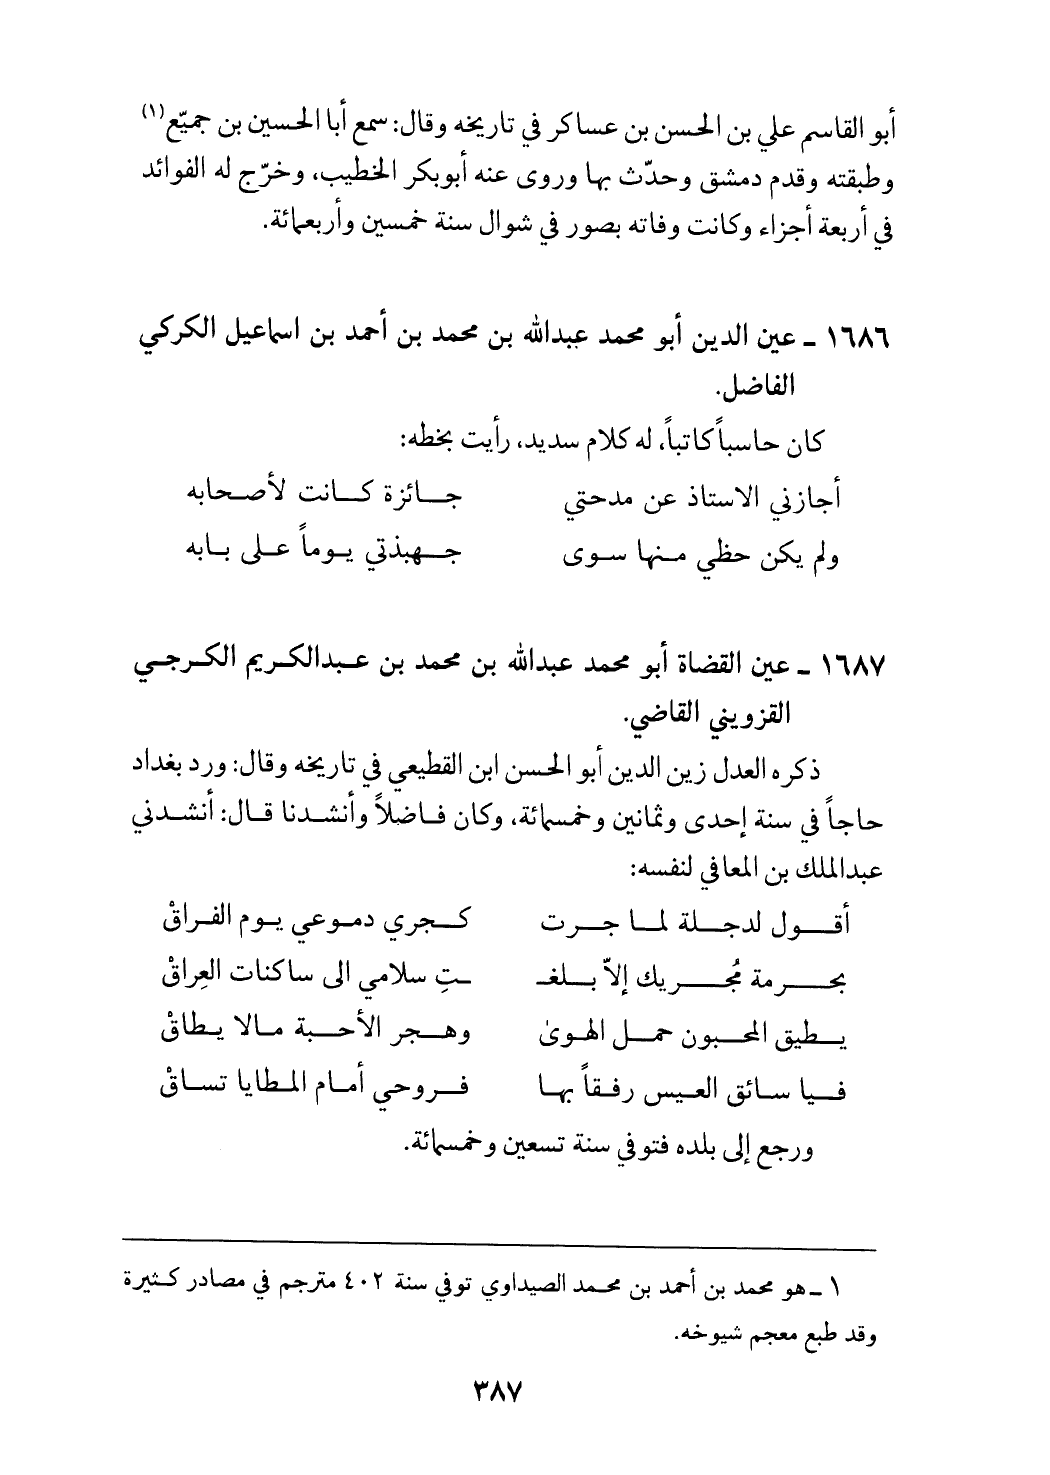 أبو القاسم علي بن الحسن بن عساكر في تاريخه وقال: سمع أبا الحسين بن جميّع(١)
وطبقته وقدم دمشق وحدّث بها وروى عنه أبوبكر الخطيب، وخرّج له الفوائد
في أربعة أجزاء وكانت وفاته بصور في شوال سنة خمسين وأربعمائة.
١٦٨٦ ـ عين الدين أبو محمد عبدالله بن محمد بن أحمد بن اسماعيل الكركي
الفاضل.
كان حاسباً كاتباً، له كلام سديد، رأيت بخطه:
أجازني الاستاذ عن مدحتي جـائزة كـانت لأصحابه
ولم يكن حظي مـنها سـوى جـهبذتي يـوماً عـلى بـابه
١٦٨٧ ـ عين القضاة أبو محمد عبدالله بن محمد بن عـبدالكـريم الكـرجـي
القزويني القاضي.
ذكره العدل زين الدين أبو الحسن ابن القطيعي في تاريخه وقال: ورد بغداد
حاجاً في سنة إحدى وثمانين وخمسمائة، وكان فـاضلاً وأنشـدنا قـال: أنشـدني
عبدالملك بن المعافي لنفسه:
أقـول لدجـلة لمـا جـرت كـجري دمـوعي يـوم الفـراقْ
بحـرمة مُجـريك إلاّ بـلغـ ـتِ سلامي الى ساكنات العِراقْ
يـطيق المحـبون حمـل الهوىٰ وهـجر الأحـبة مـالا يـطاقْ
فـيا سـائق العـيس رفـقاً بهـا فـروحي أمـام المـطايا تسـاقْ
ورجع إلى بلده فتوفي سنة تسعين وخمسمائة.
١ ـ هو محمد بن أحمد بن محـمد الصيداوي توفي سنة ٤٠٢ مترجم في مصادر كـثيرة
وقد طبع معجم شيوخه.
٣٨٧